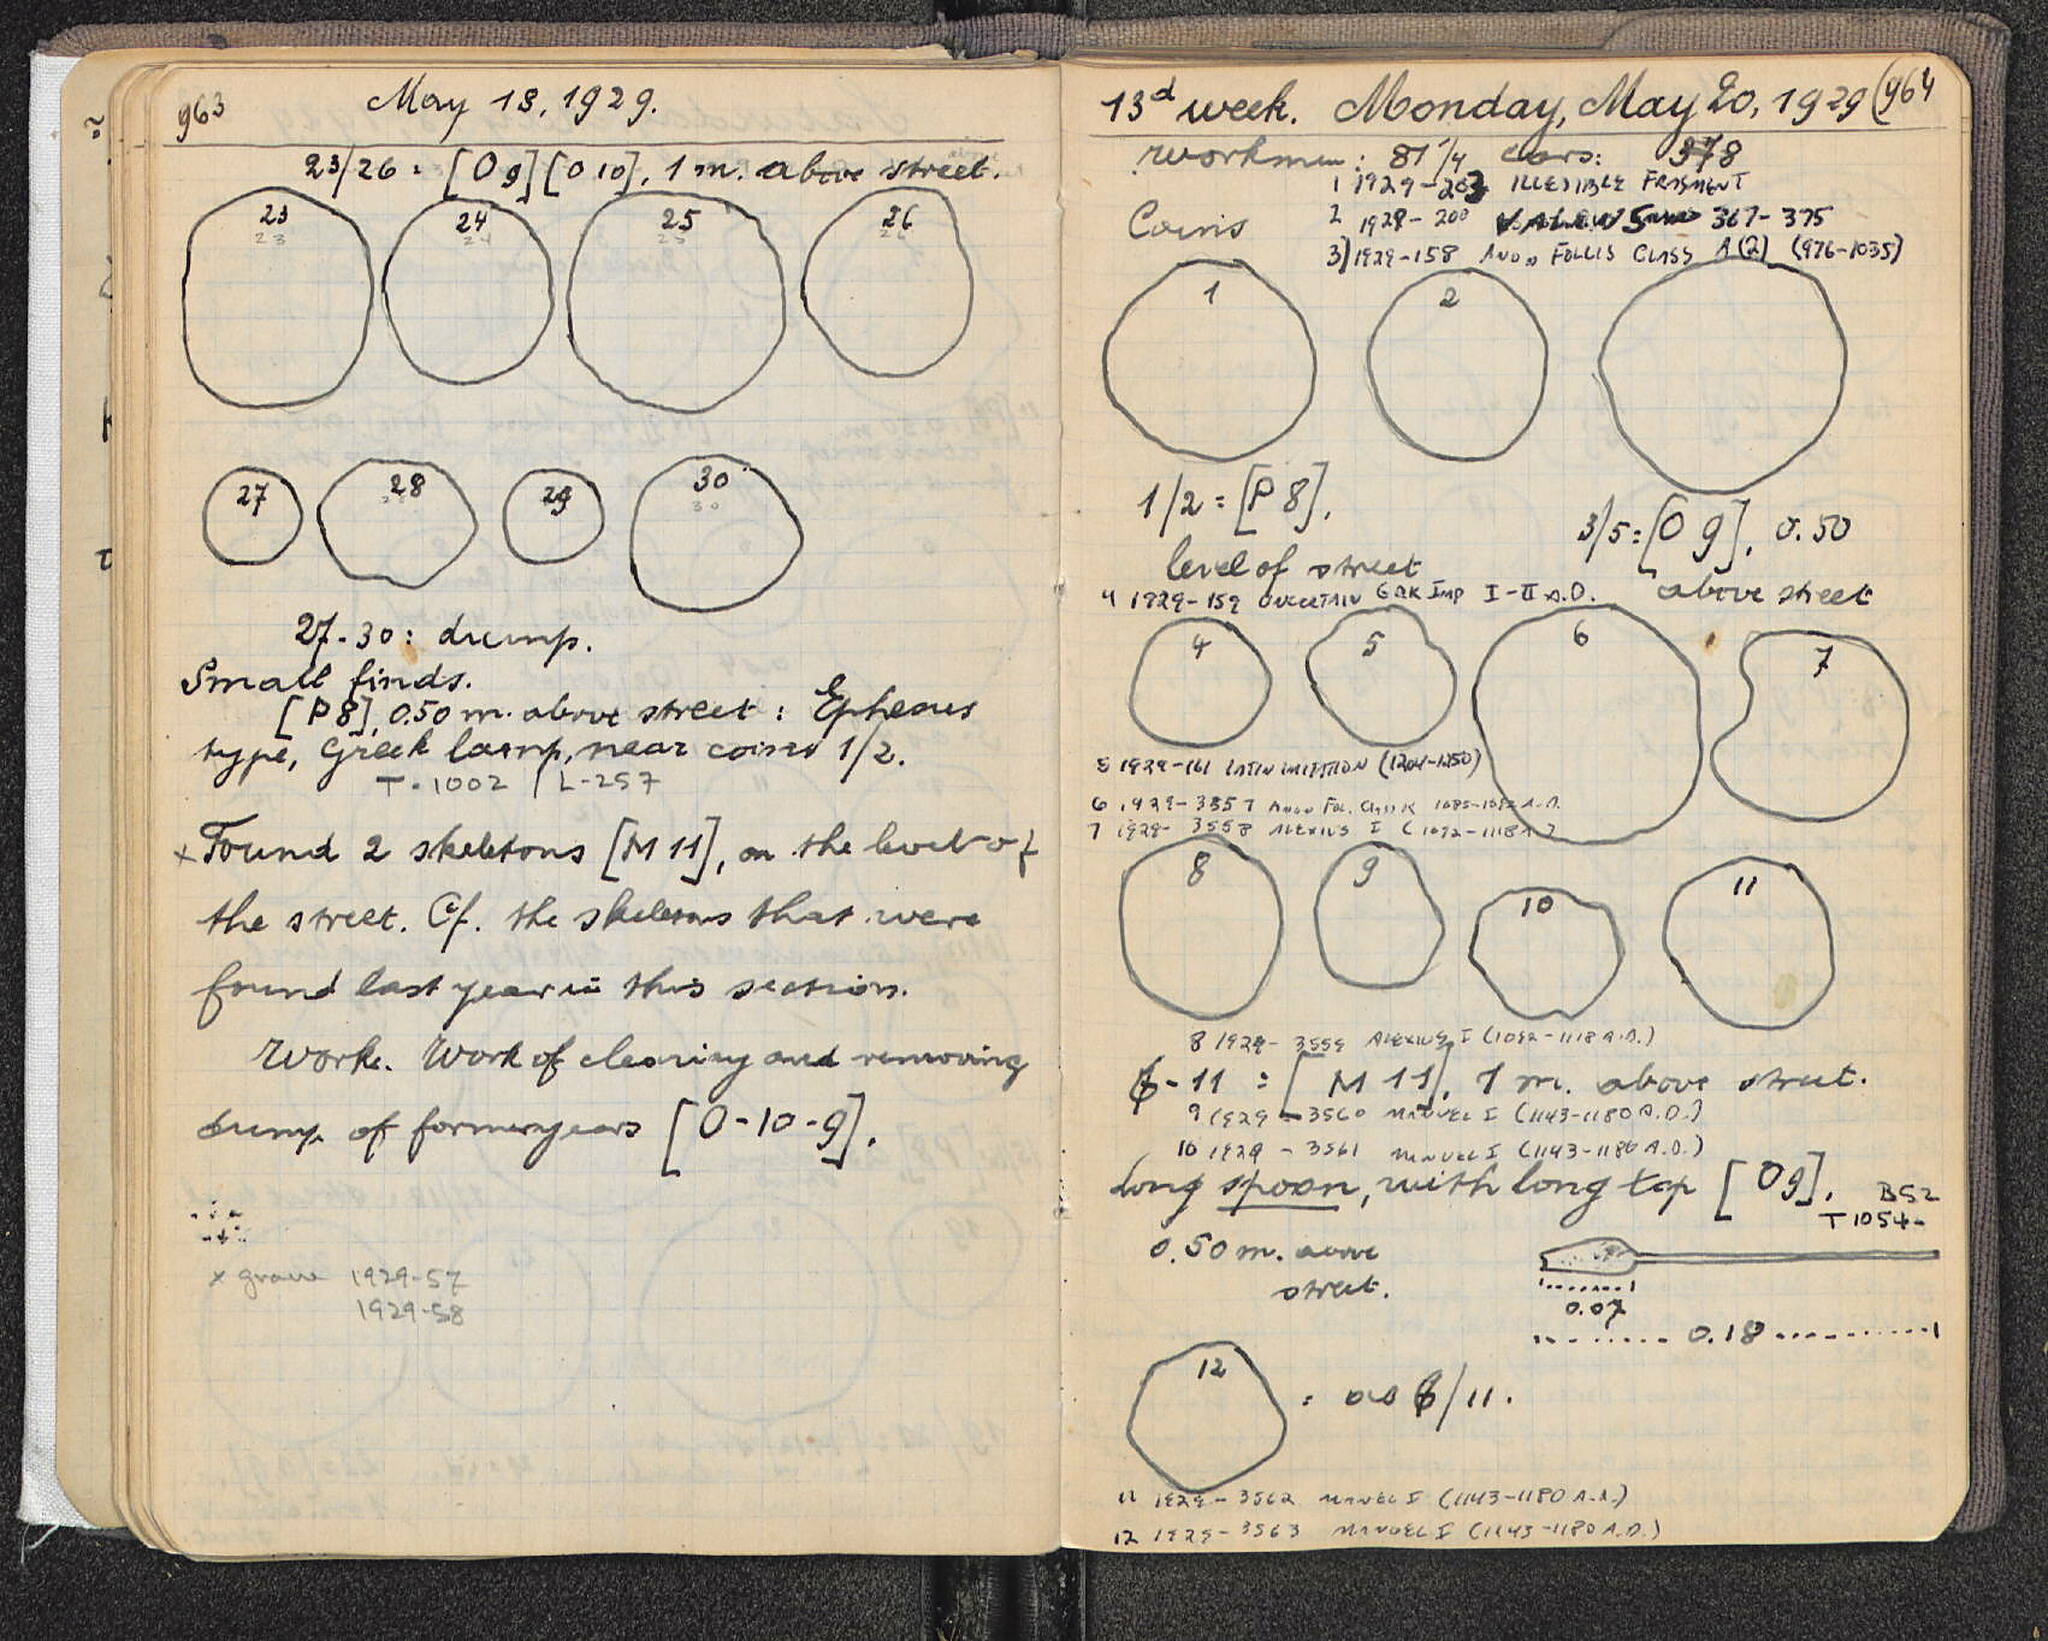 963
May 18, 1929.
23/26 = [O 9] [O 10], 1 m. above street.
23 24 25 26
23 24 25 26
27 28 29 30
28 30
27-30: dump.
Small finds.
[P 8], 0.50 m. above street: Ephesus
type, Greek lamp, near coins 1/2.
T-1002 / L-257
x Found 2 skeletons [M 11], on the level of
the street. Cf. the skeletons that were
found last year in this section.
Work. Work of clearing and removing
dump of former years [O-10-9].
x grave 1929-57
1929-58
13d week. Monday, May 20, 1929 (964
Workmen: 81 1/4 cars: 378
1 1929-203 ILLEGIBLE FRAGMENT
Coins
2 1929-200 VALENS 367-375
3) 1929-158 ANON FOLLIS CLASS A(2) (976-1035)
1 2
1/2 = [P 8].
level of street
3/5 = [O 9], 0.50
above street
4 1929-159 UNCERTAIN GRK IMP I-II A.D.
4 5 6 7
5 1929-161 LATIN IMITATION (1204-1250)
6 1929-3557 ANON FOL. CLASS K 1085-1092 A.D.
7 1929-3558 ALEXIUS I (1092-1118 A.D.)
8 9 10 11
8 1929-3559 ALEXIUS I (1092-1118 A.D.)
6-11 = [M 11], 1 m. above street.
9 1929-3560 MANUEL I (1143-1180 A.D.)
10 1929-3561 MANUEL I (1143-1180 A.D.)
Long spoon, with long top [O 9].
B52
T 1054-
0.50 m. above
street.
0.07
0.18
12 = as 6/11.
11 1929-3562 MANUEL I (1143-1180 A.D.)
12 1929-3563 MANUEL I (1143-1180 A.D.)